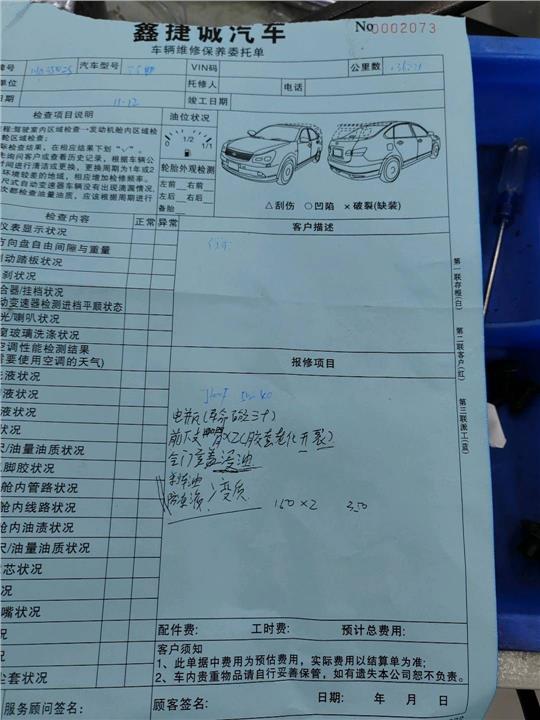 鑫捷诚汽车
车辆维修保养委托单
No 0002073
牌号 汽车型号 VIN码 公里数
单位 托修人 电话
日期 11-12 竣工日期
检查项目说明
程:驾驶室内区域检查→发动机舱内区域检
轮区域检查;
际检查结果,在相应结果下划"√"。
先询问客户或查看历史记录,根据车辆公
时间进行清洁或更换,更换周期为1年或2
环境较差的地域,相应增加检修频率。
尺式自动变速器车辆没有出现滴漏情况,
次都检查油量油质,应该根据周期进行
油位状况
1/2
1/1
轮胎外观检测
左前 右前
左后 右后
备胎
△刮伤 ○凹陷 ×破裂(缺装)
检查内容 正常 异常
仪表显示状况
方向盘自由间隙与重量
制动踏板状况
刹状况
合器/挂档状况
动变速器检测进档平顺状态
光/喇叭状况
窗玻璃洗涤状况
空调性能检测结果
需要使用空调的天气)
洗液状况
液状况
液状况
状况
尺/油量油质状况
脚胶状况
舱内管路状况
舱内线路状况
舱内油渍状况
尺/油量油质状况
芯状况
况
嘴状况
况
况
尘套状况
客户描述
报修项目
前下支臂×2(胶套老化开裂)
全门室盖漫油
刹车油
防冻液 变质
150×2 350
配件费: 工时费: 预计总费用:
客户须知
1、此单据中费用为预估费用,实际费用以结算单为准;
2、车内贵重物品请自行妥善保管,如有遗失本公司恕不负责。
服务顾问签名: 顾客签名: 日期: 年 月 日
第一联存根(白)
第二联客户(红)
第三联派工(蓝)